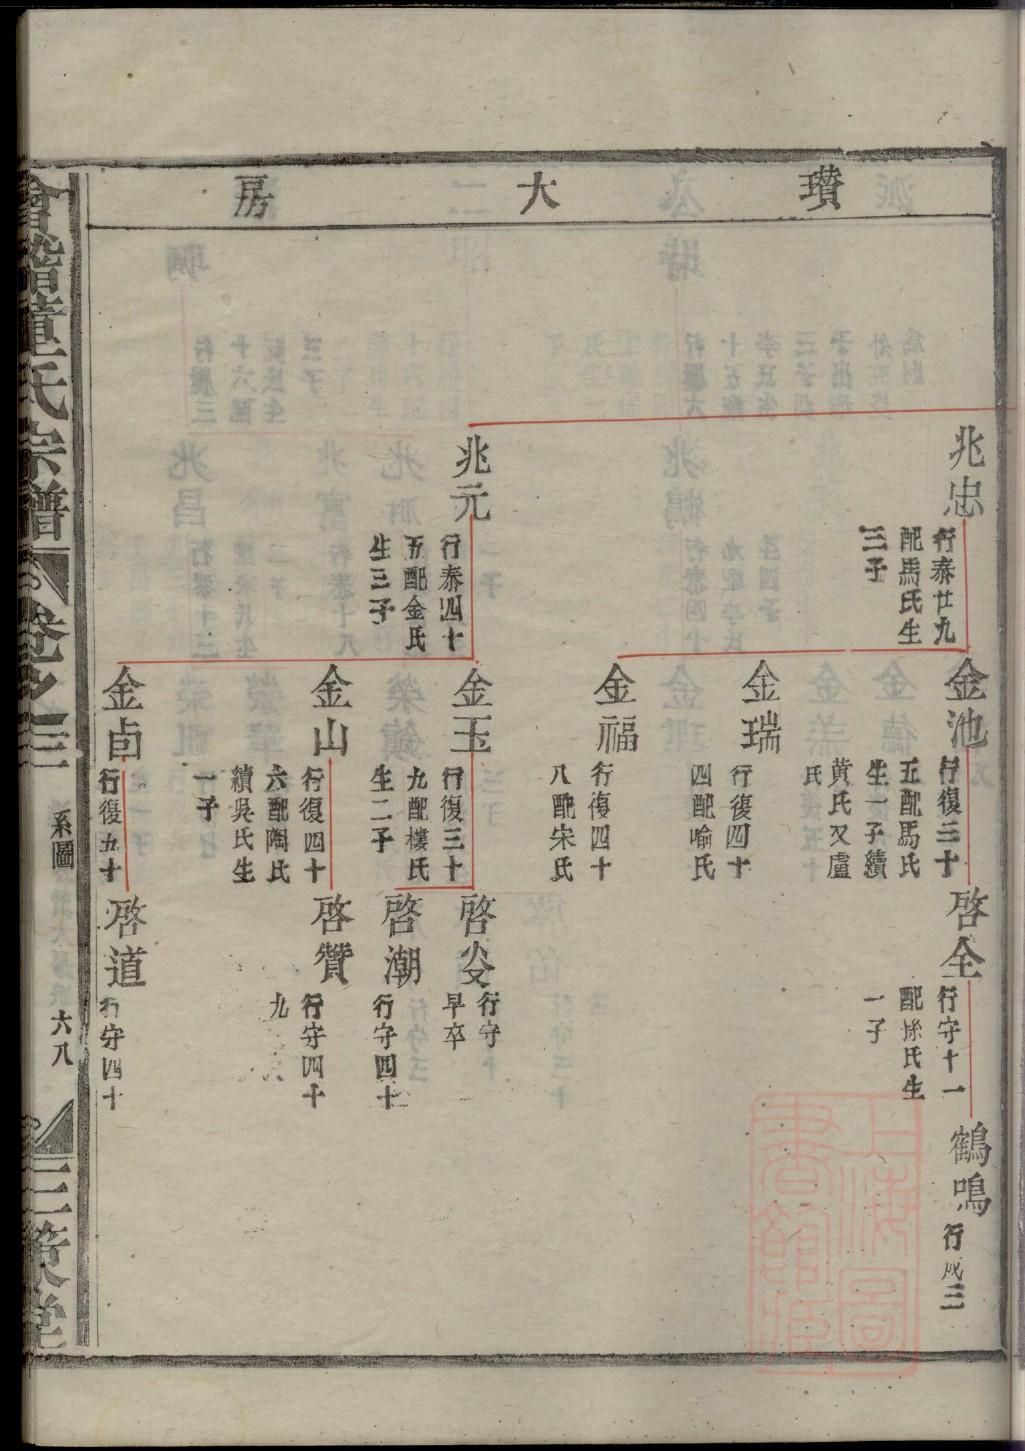 瓚大房
兆忠
行泰廿九
配馬氏生
三子
兆元
行泰四十
五配金氏
生三子
金池
行復三十
五配馬氏
生一子續
黃氏又盧
氏
金瑞
行復四十
四配喻氏
金福
行復四十
八配宋氏
金玉
行復三十
九配樓氏
生二子
金山
行復四十
六配陶氏
續吳氏生
一子
金卣
行復五十
啓全
行守十一
配徐氏生
一子
啓
行守
早卒
啓潮
行守四十
二
啓贊
行守四十
九
啓道
行守四十
鶴鳴
行成三
會稽董氏宗譜
卷之三
系圖
六八
三策堂
上海圖書館藏